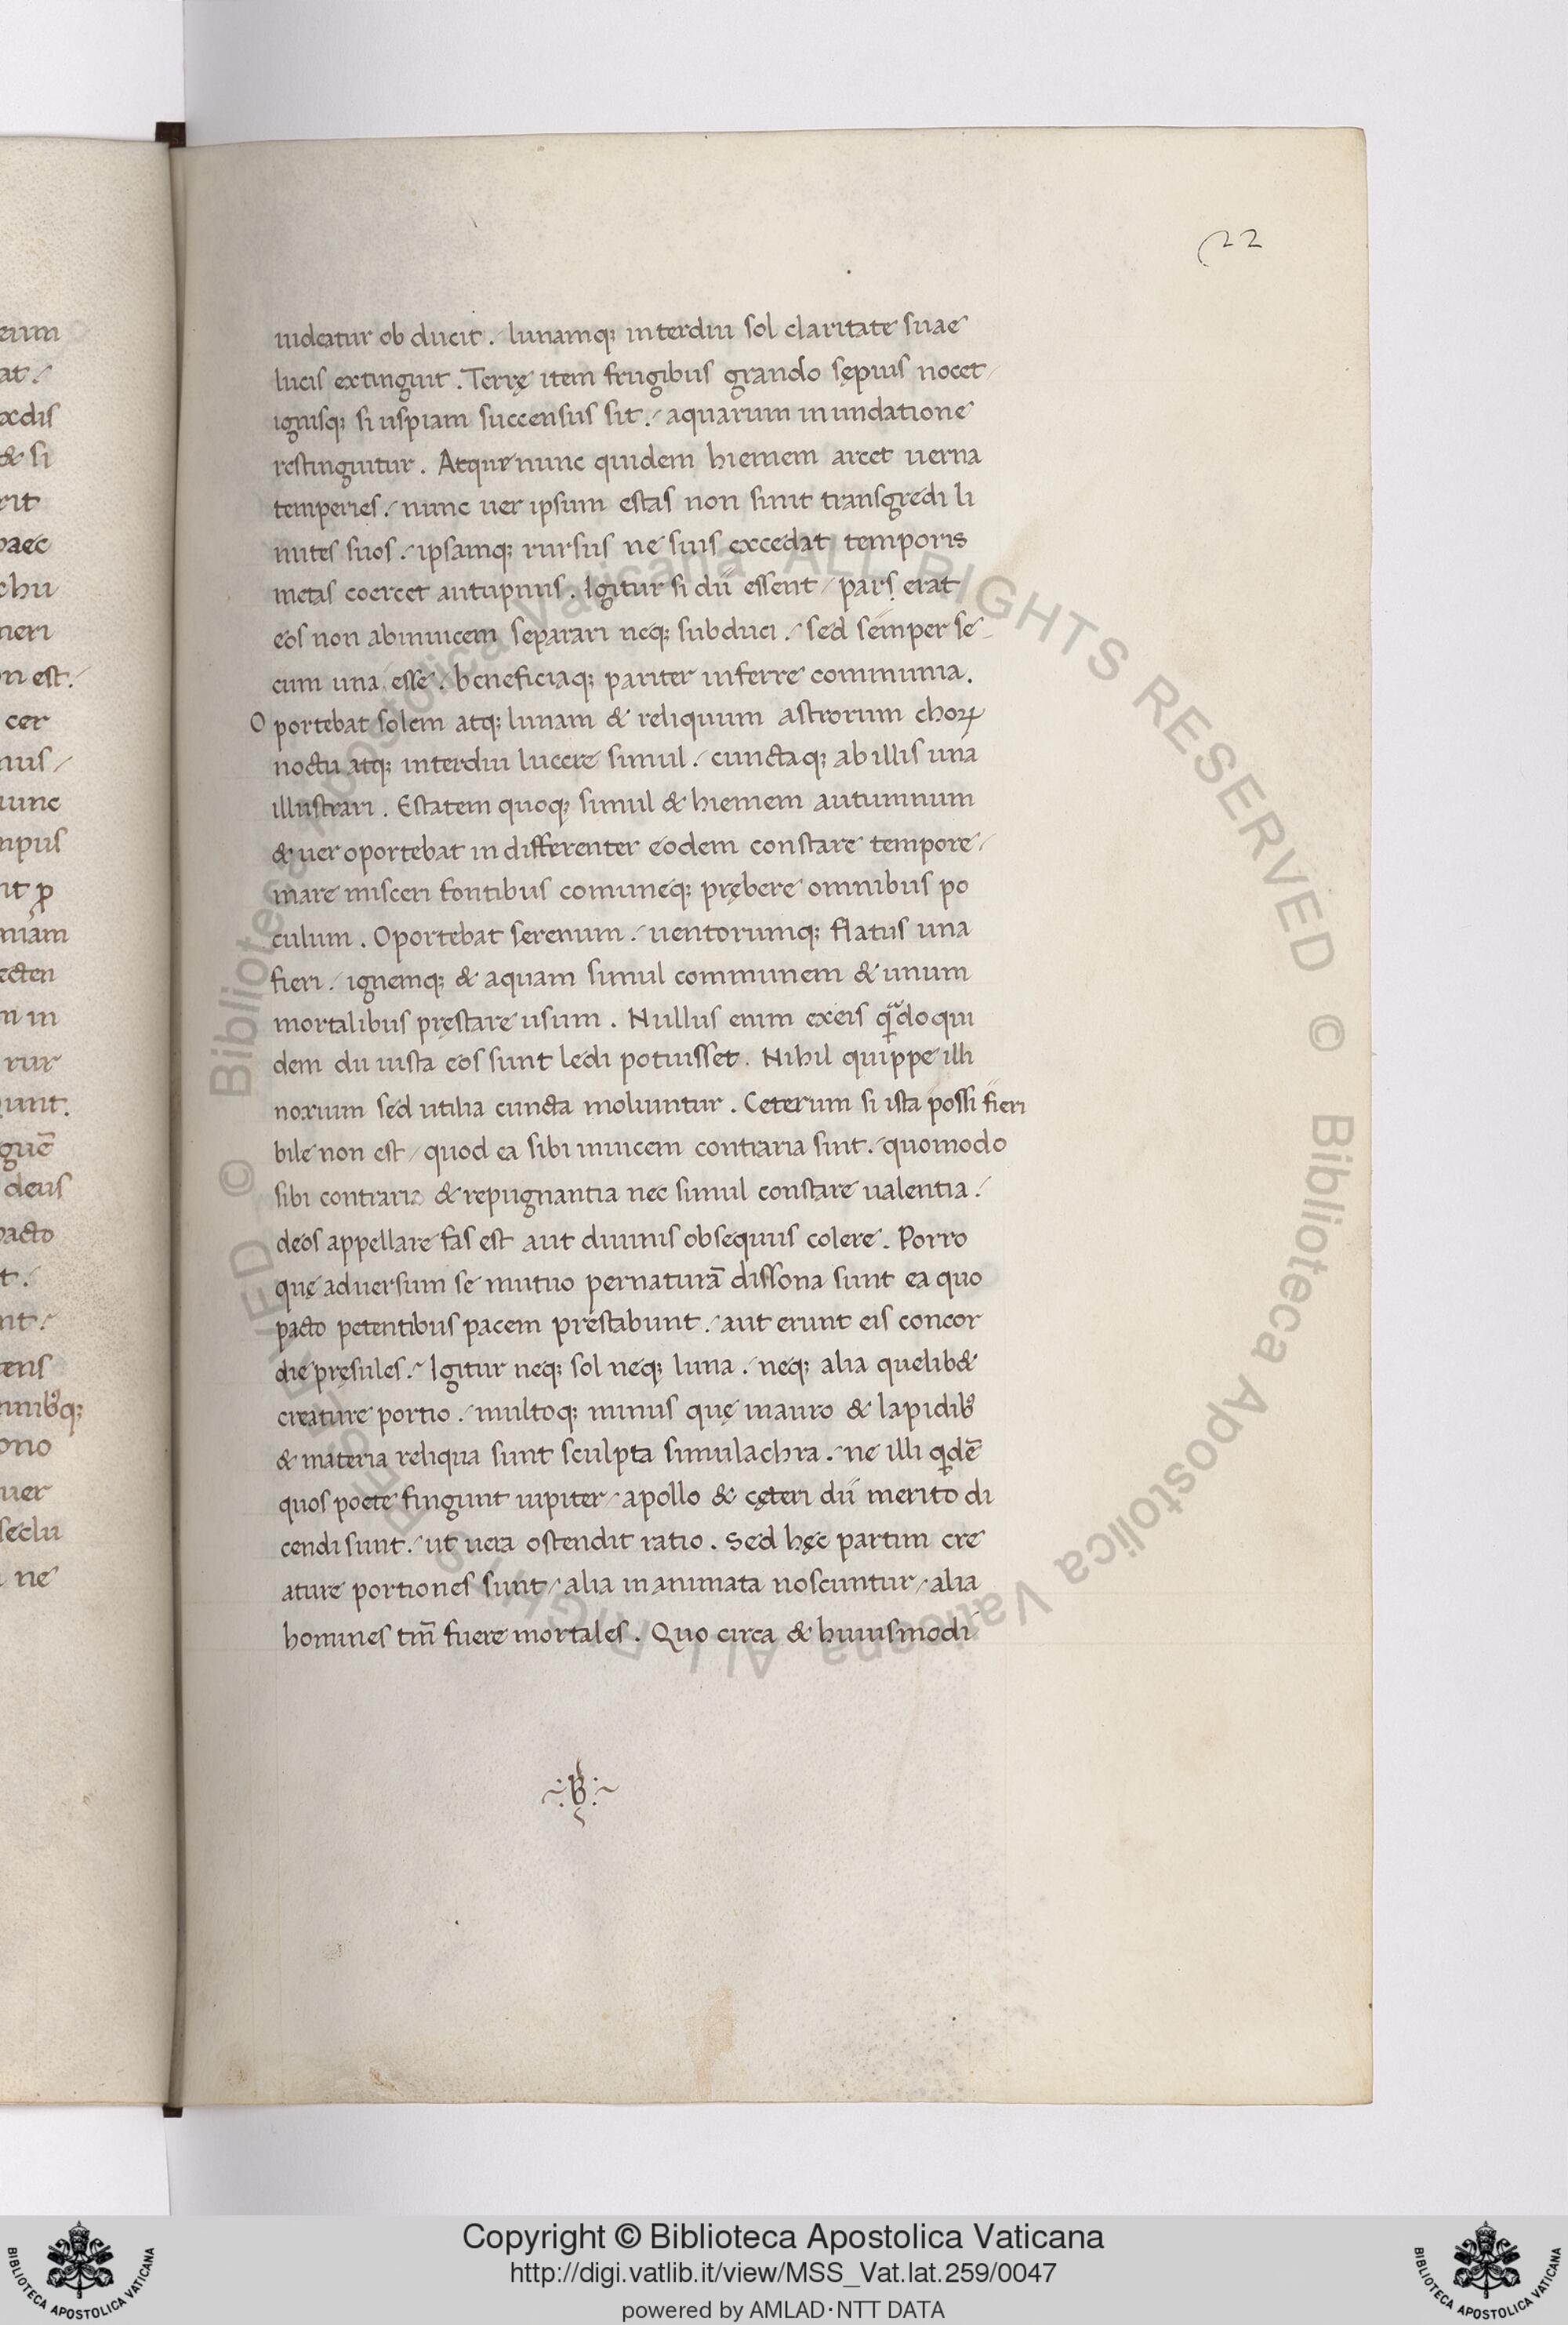 22
uideatur ob ducit ./ lunamq; interdiu sol claritate suae
lucis extinguit . Terrę item frugibus grando sępius nocet /
ignisq; si uspiam succensus sit ./ aquarum in undatione
restinguitur . Atque nunc quidem hiemem arcet uerna
temperies ./ nunc uer ipsum estas non sinit transgredi li
mites suos ./ ipsamq; rursus ne suis excedat temporis
metas coercet autupnus . Igitur si dii essent / par erat
eos non abinuicem separari neq; subduci ./ sed semper se
cum una esse . beneficiaq; pariter inferre communia .
O portebat solem atq; lunam & reliquum astrorum choꝝ
noctu atq; interdiu lucere simul ./ cunctaq; ab illis una
illustrari . Estatem quoq; simul & hiemem autumnum
& uer oportebat in differenter eodem constare tempore /
mare misceri fontibus comuneq; prębere omnibus po
culum . Oportebat serenum ./ uentorumq; flatus una
fieri ./ ignemq; & aquam simul communem & unum
mortalibus pręstare usum . Nullus enim ex eis qądo qui
dem dii iusta eos sunt ledi potuisset . Nihil quippe illi
noxium sed utilia cuncta moliuntur . Ceterum si ista possi fieri
bile non est / quod ea sibi inuicem contraria sint ./ quomodo
sibi contraria & repugnantia nec simul constare ualentia ./
deos appellare fas est aut diuinis obsequiis colere . Porro
quę aduersum se mutuo per naturā dissona sunt ea quo
pacto petentibus pacem prestabunt ./ aut erunt eis concor
die pręsules ./ Igitur neq; sol neq; luna ./ neq; alia quelib&
creature portio ./ multoq; minus quę in auro & lapidib9
& materia reliqua sunt sculpta simulachra ./ ne illi qdē
quos poete fingunt iupiter / apollo & cęteri dii merito di
cendi sunt ./ ut uera ostendit ratio . Sed hęc partim cre
ature portiones sunt / alia in animata noscuntur / alia
homines tm̄ fuere mortales . Quo circa & huiusmodi
Copyright © Biblioteca Apostolica Vaticana
http://digi.vatlib.it/view/MSS_Vat.lat.259/0047
powered by AMLAD·NTT DATA